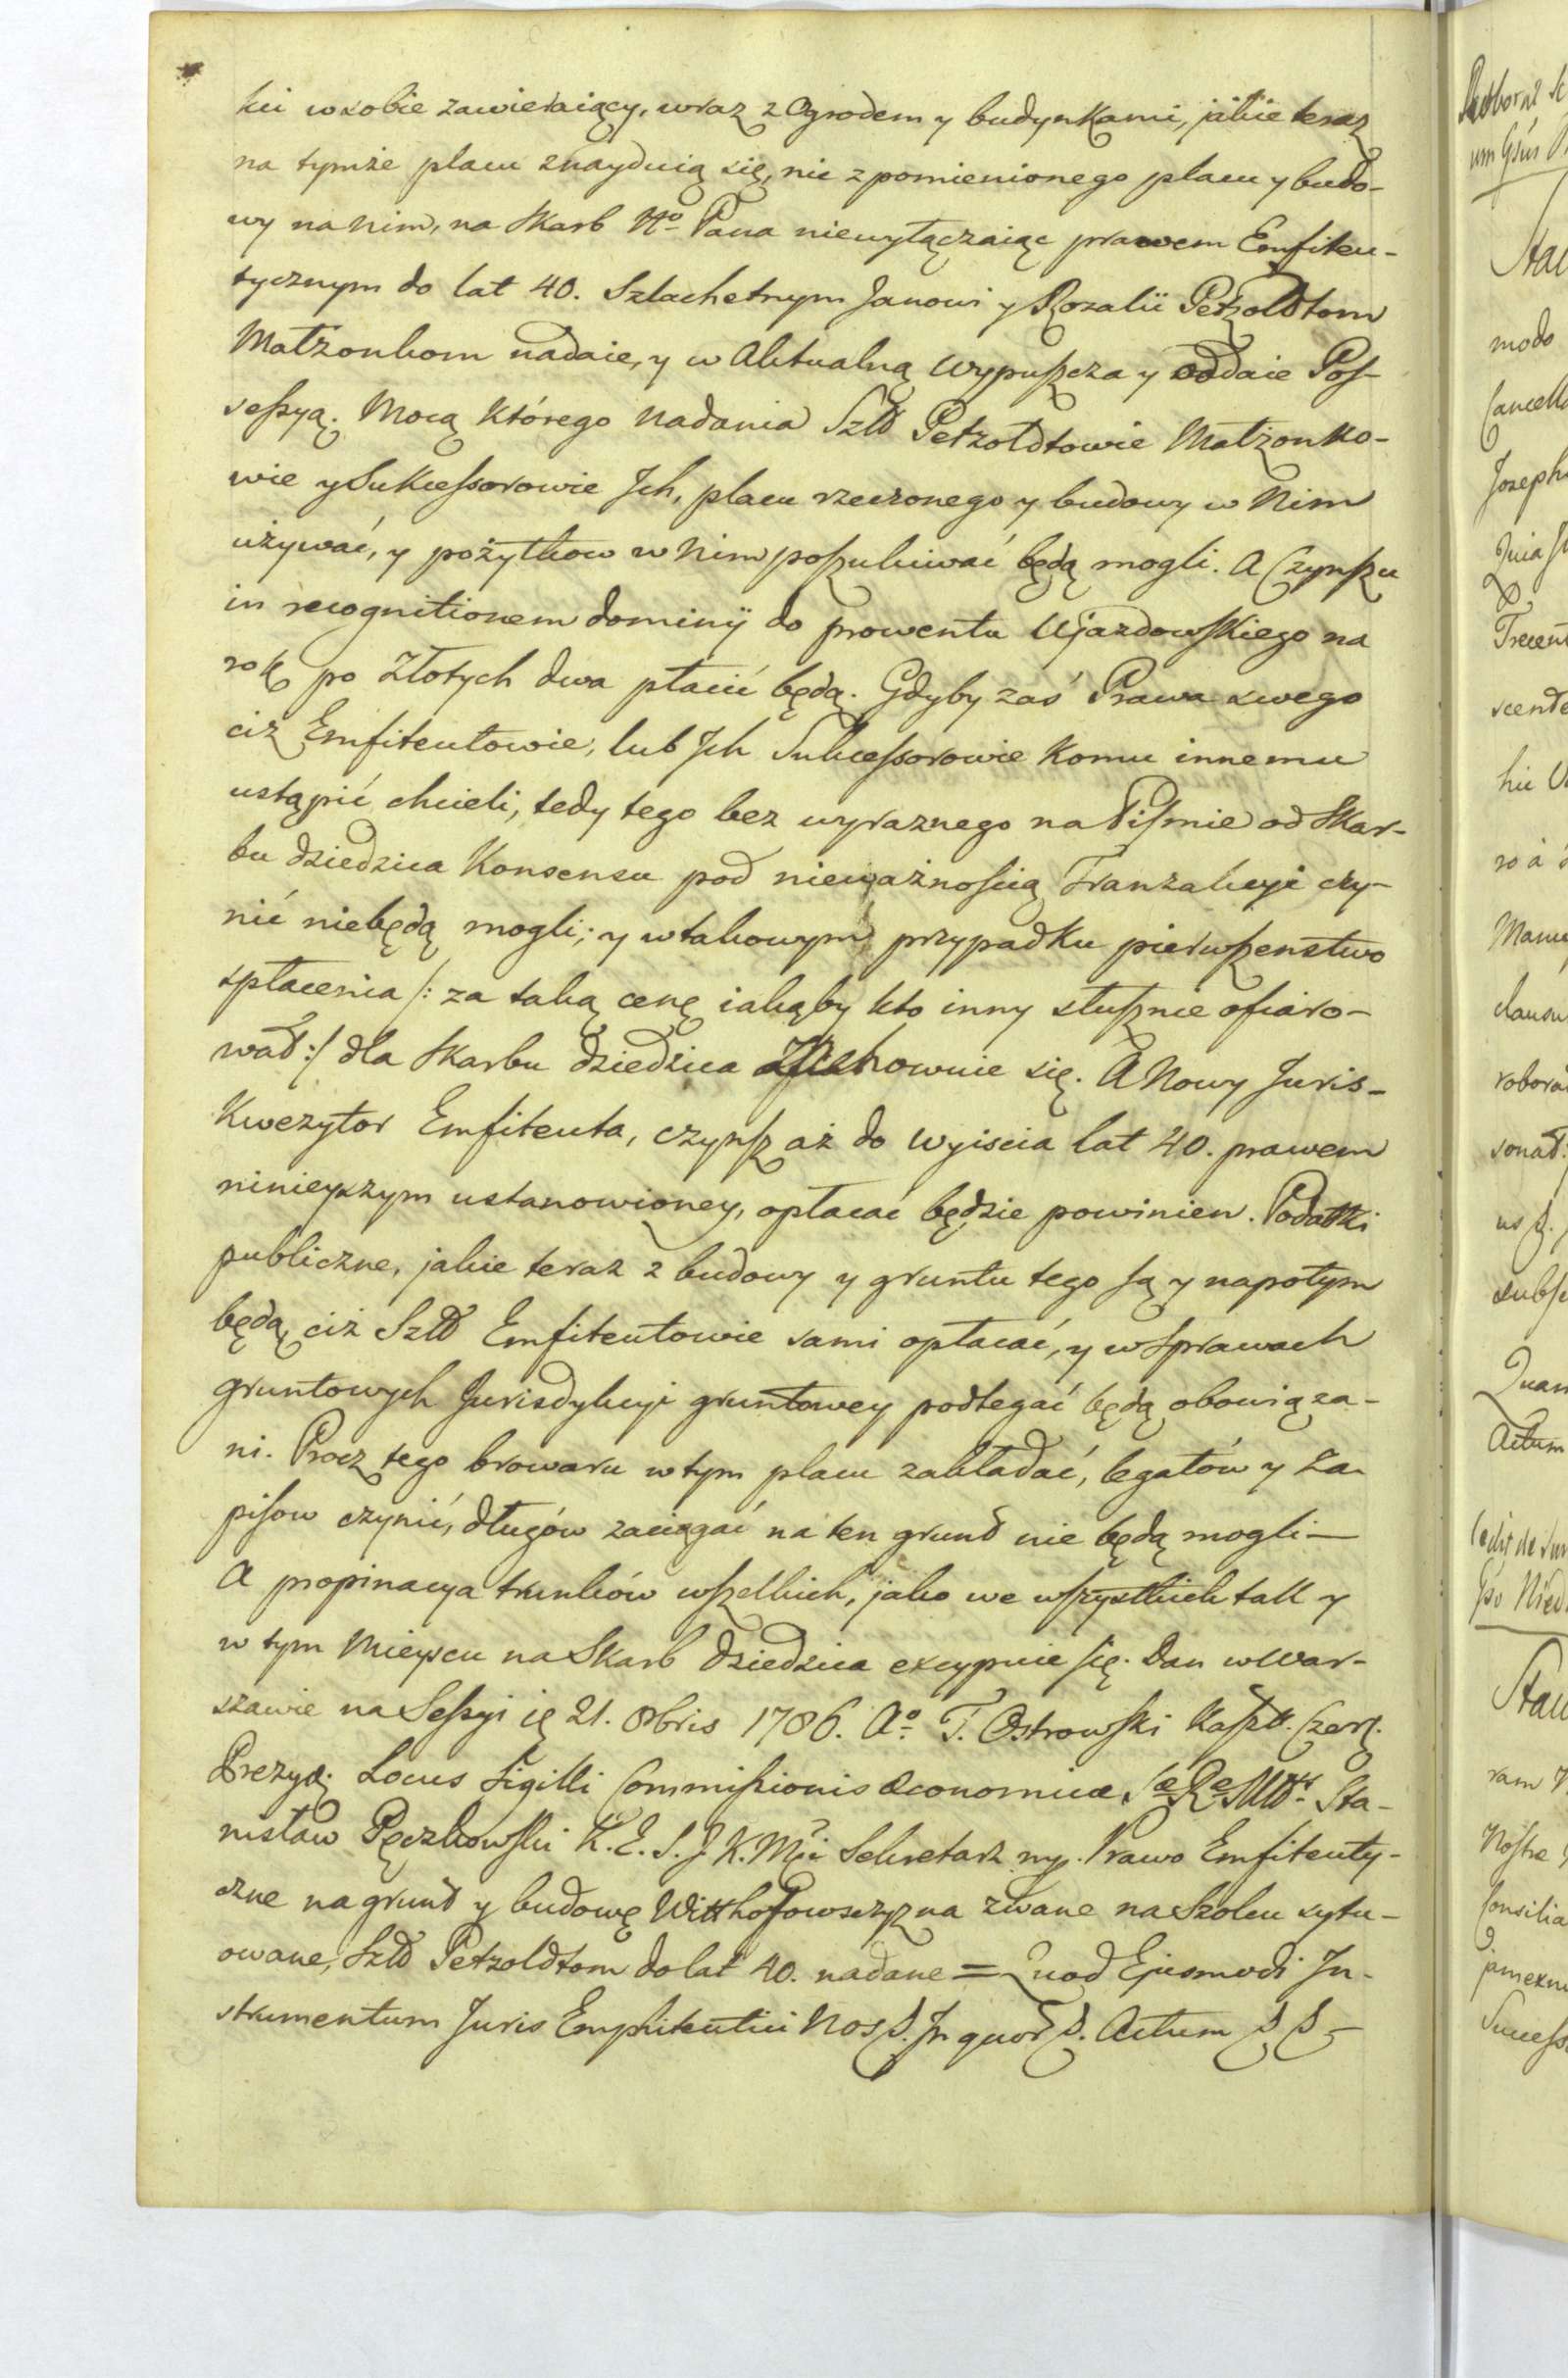 kci w sobie zawieraiący, wraz z Ogrodem y budynkami, jakie teraz
na tymże placu znayduią się, nic z pomienionego placu y budo-
wy na nim, na Skarb Nº Pana niewyłączaiąc prawem Emfiteu-
tycznym do lat 40. Szlachetnym Janowi y Rozalii Petzoldtom
Małżonkom nadaie, y w Aktualną wypuszcza y oddaie Pos-
sessyą. Mocą którego Nadania Szld Petzoldtowie Małżonko-
wie y Sukcessorowie Jch, placu rzeczonego y budowy w Nim
używać, y pożytkow w Nim poszukiwać będą mogli. A Czynszu
in recognitionem dominij do prowentu Ujazdowskiego na
rok po Złotych dwa płacić będą. Gdyby zaś Prawa swego
ciż Emfiteutowie, lub Jch Sukcessorowie Komu innemu
ustąpić chcieli, tedy tego bez wyraznego na Piśmie od Skar-
bu dziedzica Konsensu pod nieważnością Tranzakcyi czy-
nić niebędą mogli; y w takowym przypadku pierwszenstwo
spłacenia /: za taką cenę iakąby kto inny słusznie ofiaro-
wał :/ dla Skarbu dziedzica Zachownie się. A Nowy Juris-
Kwezytor Emfiteuta, czynsz aż do wyiscia lat 40. prawem
ninieyszym ustanowioney, opłacać będzie powinien. Podatki
publiczne, jakie teraz z budowy y gruntu tego są y napotym
będą, ciż Szld Emfiteutowie sami opłacać, y w Sprawach
gruntowych Jurisdykcyi gruntowey podlegać będą obowiąza-
ni. Procz tego browaru w tym placu zakładać, legatów y Za-
pisow czynić, długów zaciągać na ten grund nie będą mogli —
A propinacya trunków wszelkich, jako we wszystkich tak y
w tym Mieyscu na Skarb Dziedzica excypuie się. Dan w War-
szawie na Sessyi ię 21. 8bris 1786. Aº T. Ostrowski Kaszt. Czers.
Prezyd. Locus Sigilli Commissionis Œconomicæ Sæ Ræ Mttis Sta-
nisław Pęczkowski K. E. S. J. K. Mci Sekretarz mp. Prawo Emfiteuty-
czne na grund y budowę Witthofowszczyzna zwane na Szolcu sytu-
owane, Szld Petzoldtom do lat 40. nadane = Quod Ejusmodi In-
strumentum Juris Emphiteutici Nos S. In quor S. Actum S. S —